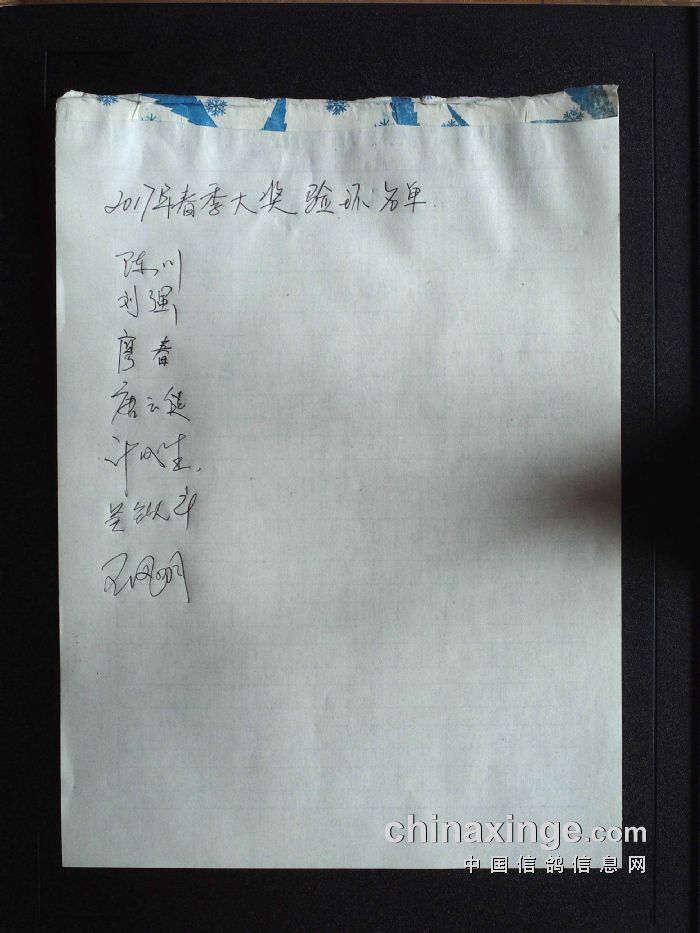 2017年春季大奖验环名单
陈川
刘强
廖春
唐云
许成生
兰
王凤明
chinaxinge.com
中国信鸽信息网